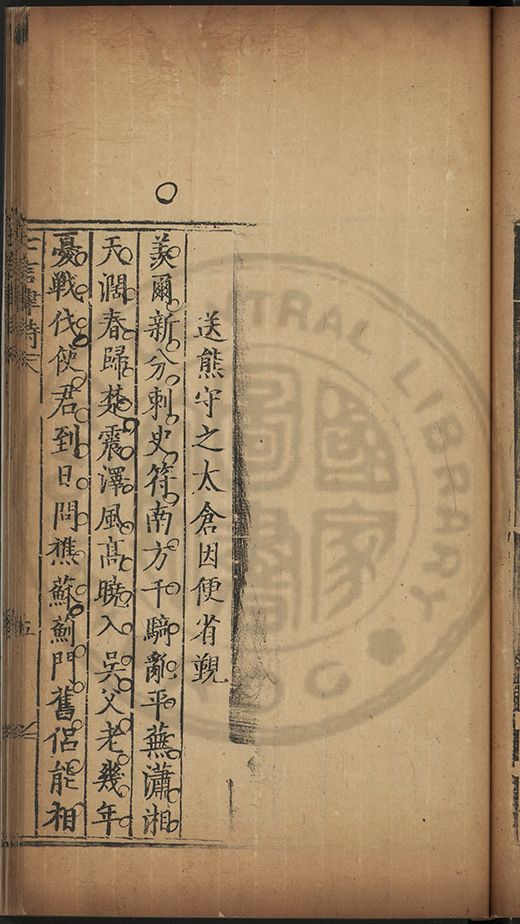 送熊守之太倉因便省覲
羨爾新分刺史符南方千騎亂平蕪瀟湘
天濶春歸楚震澤風髙曉入吳父老幾年
憂戰伐使君到日問樵蘇薊門舊侣能相
七言律詩
五
國家圖書
CENTRAL LIBRARY